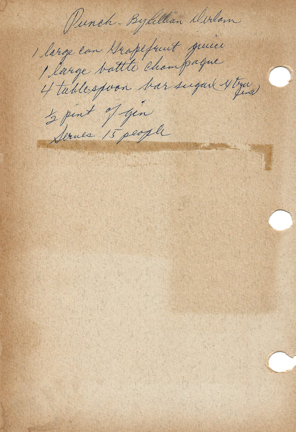 Punch - By Lillian Dirham
1 large can Grapefruit juice
1 large bottle Champagne
4 tablespoon bar sugar
½ pint of gin
Serves 15 people